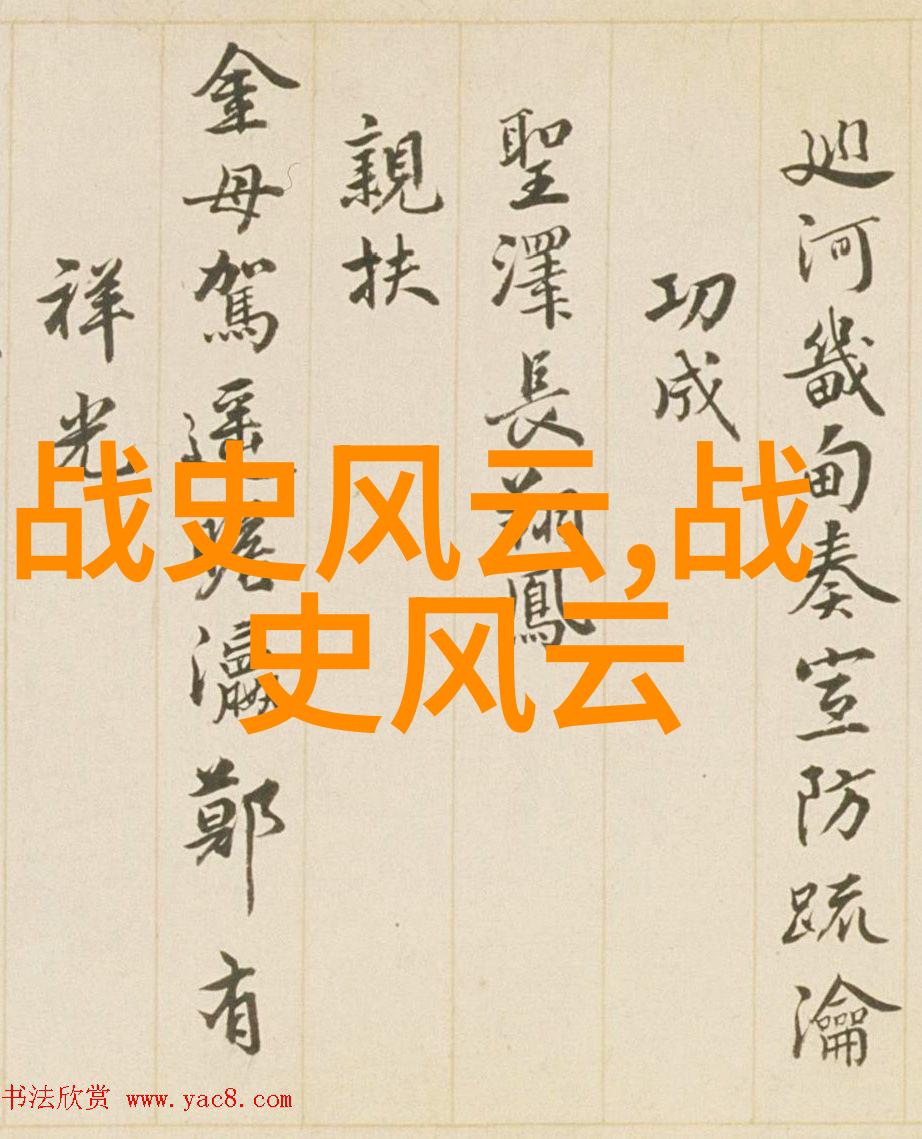 巡河畿甸奏宣防疏瀹
功成
聖澤長翔鳳
親扶
金母駕遥瞻瀛鄭有
祥光
战史风云,战
史风云
书法欣赏 www.yac8.com